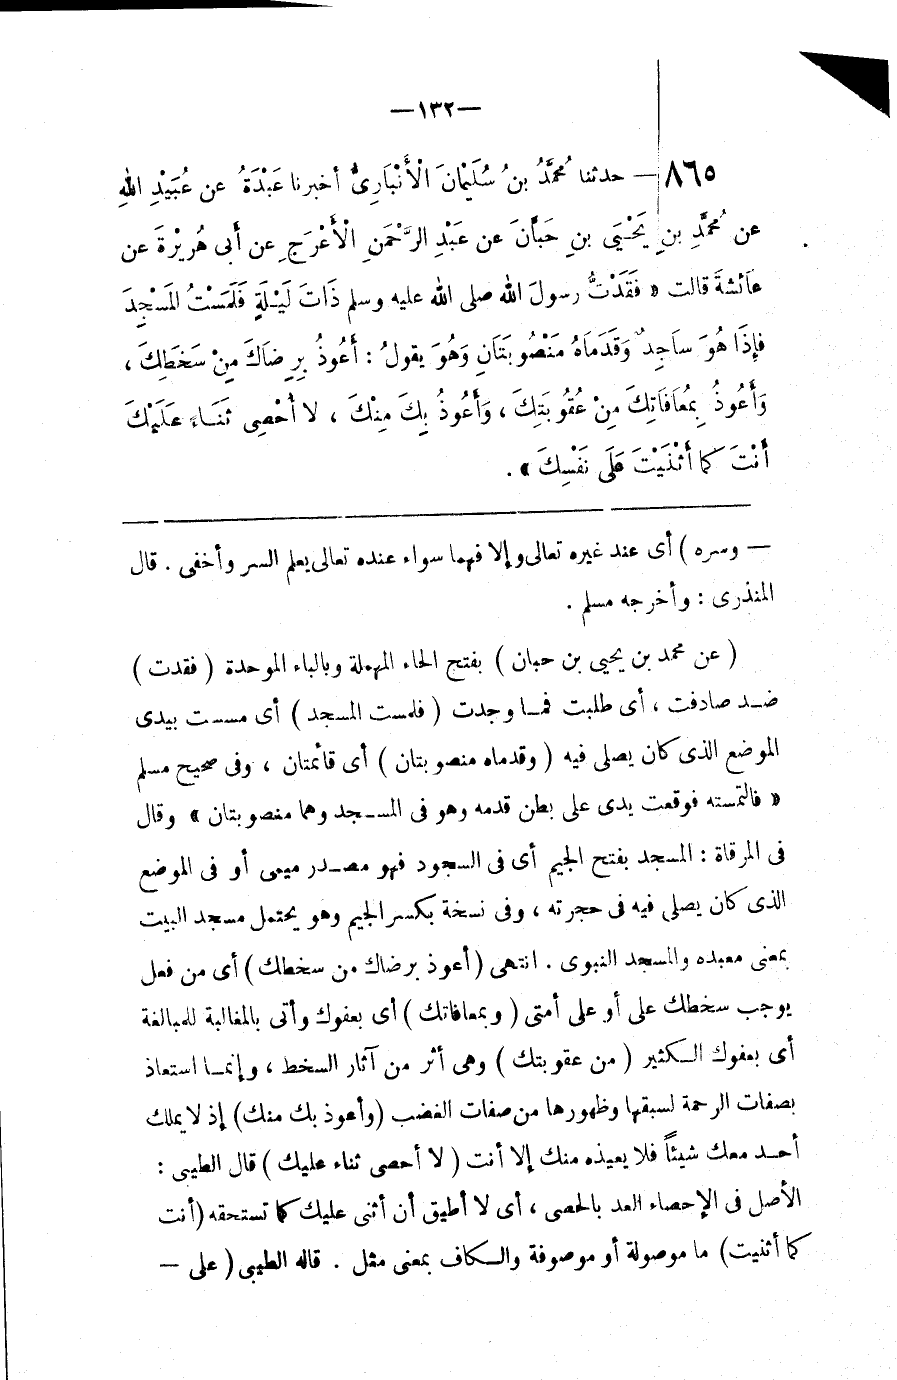 —١٣٢—
٨٦٥ — حدثنا مُحمَّدُ بنُ سُلَيْمانَ الْأَنْبَارِىُّ أخبرنا عَبْدَةُ عن عُبَيْدِ اللهِ
عن مُحمَّدِ بنِ يَحْيَى بنِ حَبَّانَ عن عَبْدِ الرَّحْمنِ الْأَعْرَجِ عن أبى هُرِيْرةَ عن
عَائشةَ قالت « فَقَدْتُ رسولَ الله صلى الله عليه وسلم ذَاتَ لَيْـلَةٍ فَلَمَسْتُ المَسْجِدَ
فإِذَا هُوَ ساَجِدٌ وَقَدَماَهُ مَنْصُوبَتَانِ وَهُوَ يقولُ : أَعُوذُ بِرِضاَكَ مِنْ سَخَطِكَ ،
وَأَعُوذُ بِمُعاَفَاتِكَ مِنْ عُقُوبَتِكَ ، وَأَعُوذُ بِكَ مِنْكَ ، لا أُحْصِى ثَنَـاءً عَلَيْكَ
أَنْتَ كَمَا أَثْنَيْتَ عَلَى نَفْسِكَ » .
— وسره ) أى عند غيره تعالى وإلا فهما سواء عنده تعالى يعلم السر وأخفى . قال
المنذرى : وأخرجه مسلم .
( عن محمد بن يحيى بن حبان ) بفتح الحاء المهملة وبالباء الموحدة ( فقدت )
ضـد صادفت ، أى طلبت فمـا وجدت ( فلمست المسجد ) أى مسست بيدى
الموضع الذى كان يصلى فيه ( وقدماه منصوبتان ) أى قائمتان ، وفى صحيح مسلم
« فالتمسته فوقعت يدى على بطن قدمه وهو فى المسـجد وهما منصوبتان » وقال
فى المرقاة : المسجد بفتح الجيم أى فى السجود فهو مصـدر ميمى أو فى الموضع
الذى كان يصلى فيه فى حجرته ، وفى نسخة بكسر الجيم وهو يحتمل مسجد البيت
بمعنى معبده والمسجد النبوى . انتهى ( أعوذ برضاك من سخطك ) أى من فعل
يوجب سخطك على أو على أمتى ( وبمعافاتك ) أى بعفوك وأتى بالمغالبة للمبالغة
أى بعفوك الـكثير ( من عقوبتك ) وهى أثر من آثار السخط ، وإنمـا استعاذ
بصفات الرحمة لسبقها وظهورها من صفات الغضب ( وأعوذ بك منك ) إذ لا يملك
أحـد معك شيئاً فلا يعيذه منك إلا أنت ( لا أحصى ثناء عليك ) قال الطيبى :
الأصل فى الإحصاء العد بالحصى ، أى لا أطيق أن أثنى عليك كما تستحقه ( أنت
كما أثنيت ) ما موصولة أو موصوفة والـكاف بمعنى مثل . قاله الطيبى ( على —